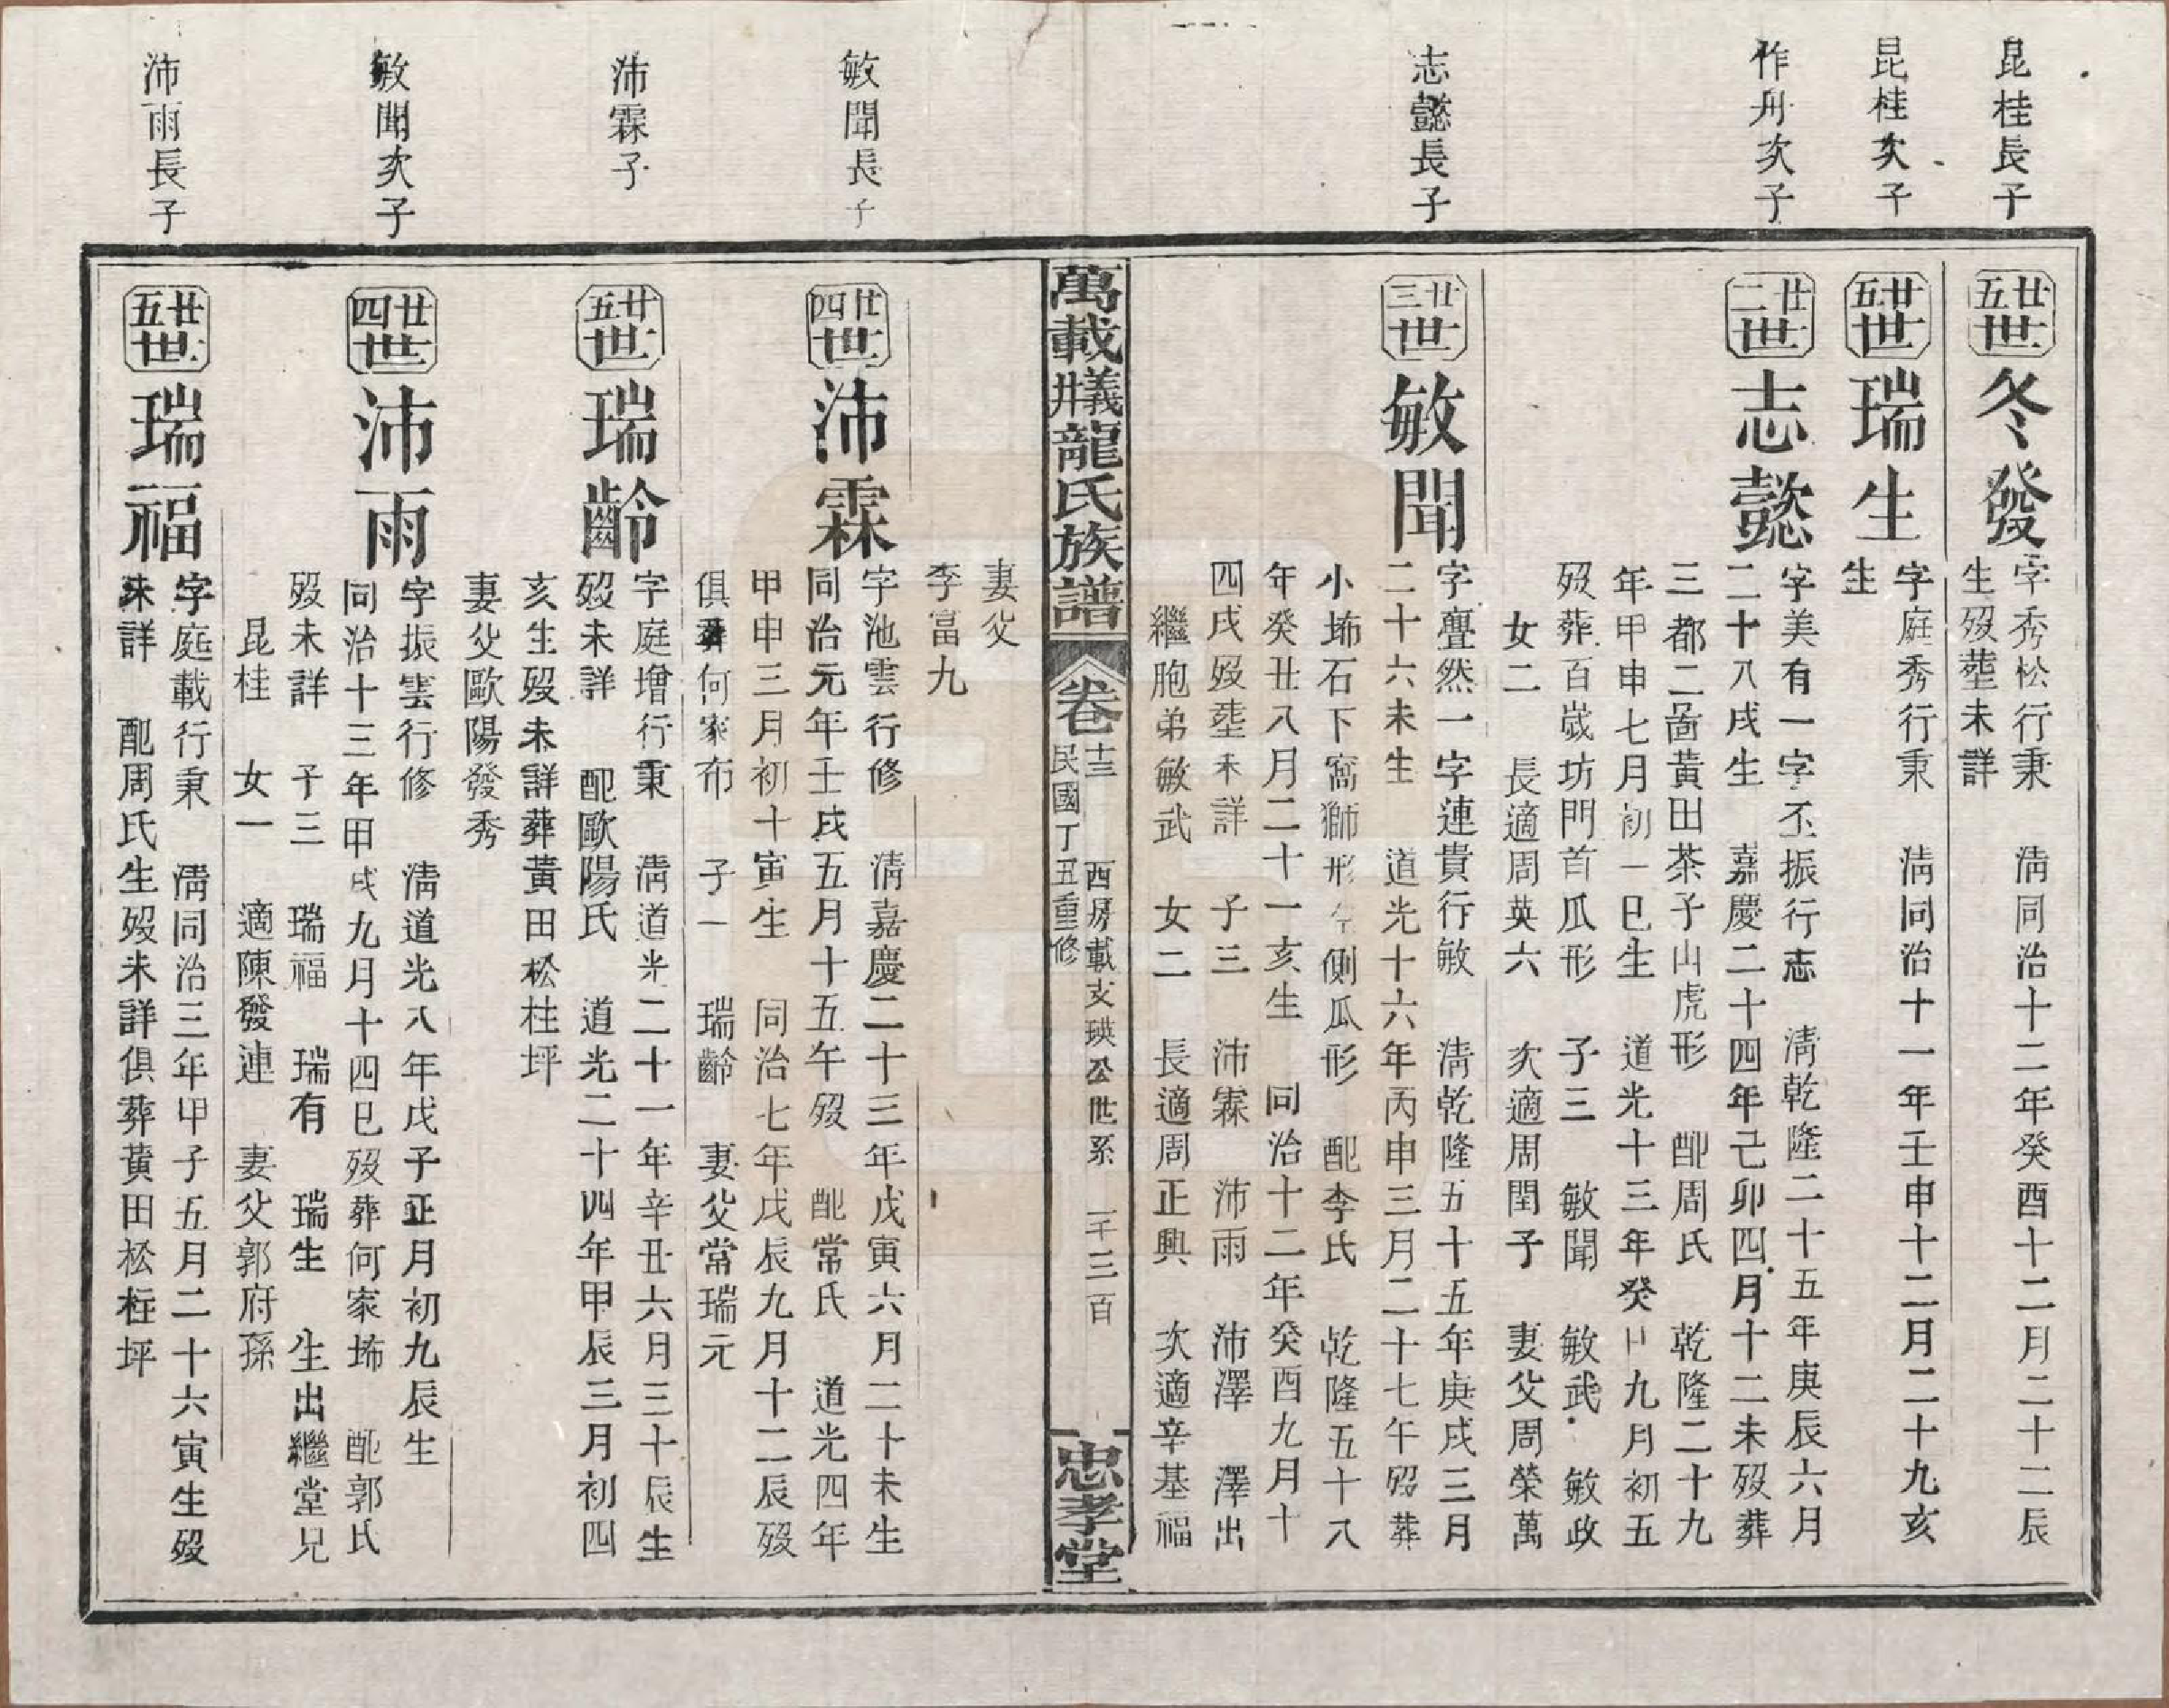 昆桂長子
廿五世
冬發
字秀松行秉　淸同治十二年癸酉十二月二十二辰
生歿塟未詳
昆桂次子
廿五世
瑞生
字庭秀行秉　淸同治十一年壬申十二月二十九亥
生
作舟次子
廿二世
志懿
字美有一字丕振行志　淸乾隆二十五年庚辰六月
二十八戌生　嘉慶二十四年己卯四月十二未歿葬
三都二啚黃田茶子山虎形　配周氏　乾隆二十九
年甲申七月初一巳生　道光十三年癸巳九月初五
歿葬百歲坊門首瓜形　子三　敏聞　敏武　敏政
女二　長適周英六　次適周閏子　妻父周榮萬
志懿長子
廿三世
敏聞
字亹然一字連貴行敏　淸乾隆五十五年庚戌三月
二十六未生　道光十六年丙申三月二十七午歿葬
小㘵石下窩獅形左側瓜形　配李氏　乾隆五十八
年癸丑八月二十一亥生　同治十二年癸酉九月十
四戌歿塟未詳　子三　沛霖　沛雨　沛澤　澤出
繼胞弟敏武　女二　長適周正興　次適辛基福
萬載義井龍氏族譜
卷十三
民國丁丑重修
西房載支瑛公世系
一千三百
忠孝堂
妻父
李富九
敏聞長子
廿四世
沛霖
字池雲行修　淸嘉慶二十三年戊寅六月二十未生
同治元年壬戌五月十五午歿　配常氏　道光四年
甲申三月初十寅生　同治七年戊辰九月十二辰歿
俱葬何家布　子一　瑞齡　妻父常瑞元
沛霖子
廿五世
瑞齡
字庭增行秉　淸道光二十一年辛丑六月三十辰生
歿未詳　配歐陽氏　道光二十四年甲辰三月初四
亥生歿未詳葬黃田松柱坪
妻父歐陽發秀
敏聞次子
廿四世
沛雨
字振雲行修　淸道光八年戊子正月初九辰生
同治十三年甲戌九月十四巳歿葬何家㘵　配郭氏
歿未詳　子三　瑞福　瑞有　瑞生　生出繼堂兄
昆桂　女一　適陳發連　妻父郭府孫
沛雨長子
廿五世
瑞福
字庭載行秉　淸同治三年甲子五月二十六寅生歿
未詳　配周氏生歿未詳俱葬黃田松柱坪